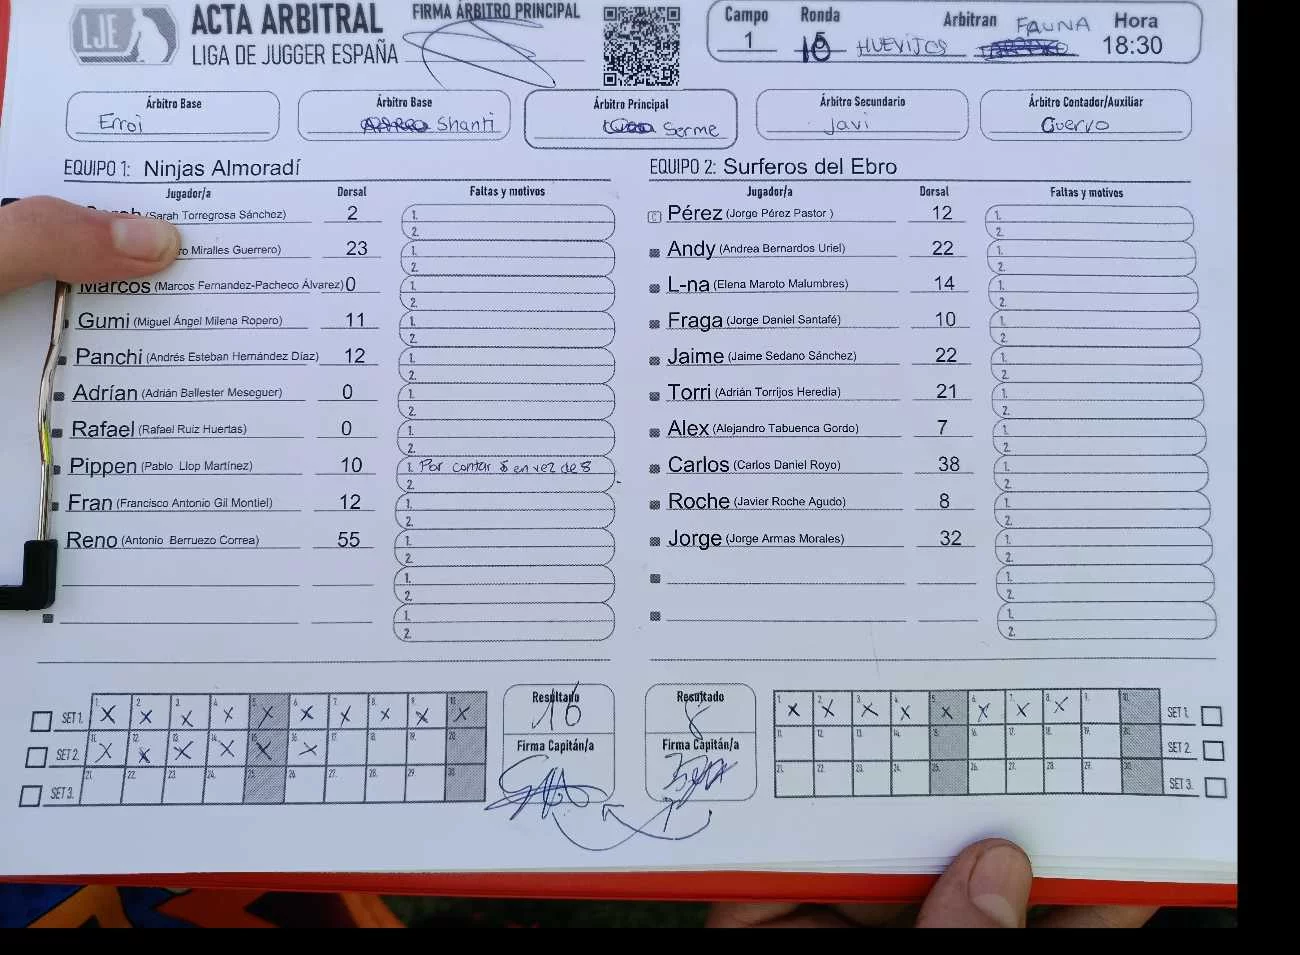 LJE ACTA ARBITRAL
LIGA DE JUGGER ESPAÑA
FIRMA ÁRBITRO PRINCIPAL
Campo Ronda Arbitran Hora
1 HUEVIJOS FAUNA 18:30
Árbitro Base Árbitro Base Árbitro Principal Árbitro Secundario Árbitro Contador/Auxiliar
Erroi Shanti Serme Javi Cuervo
EQUIPO 1: Ninjas Almoradí
Jugador/a Dorsal Faltas y motivos
(Sarah Torregrosa Sánchez) 2 1.
2.
Miralles Guerrero) 23 1.
2.
Marcos (Marcos Fernandez-Pacheco Álvarez) 0 1.
2.
Gumi (Miguel Ángel Milena Ropero) 11 1.
2.
Panchi (Andrés Esteban Hernández Díaz) 12 1.
2.
Adrían (Adrián Ballester Meseguer) 0 1.
2.
Rafael (Rafael Ruiz Huertas) 0 1.
2.
Pippen (Pablo Llop Martínez) 10 1. Por contar 5 en vez de 8
2.
Fran (Francisco Antonio Gil Montiel) 12 1.
2.
Reno (Antonio Berruezo Correa) 55 1.
2.
1.
2.
1.
2.
EQUIPO 2: Surferos del Ebro
Jugador/a Dorsal Faltas y motivos
C Pérez (Jorge Pérez Pastor ) 12 1.
2.
Andy (Andrea Bernardos Uriel) 22 1.
2.
L-na (Elena Maroto Malumbres) 14 1.
2.
Fraga (Jorge Daniel Santafé) 10 1.
2.
Jaime (Jaime Sedano Sánchez) 22 1.
2.
Torri (Adrián Torrijos Heredia) 21 1.
2.
Alex (Alejandro Tabuenca Gordo) 7 1.
2.
Carlos (Carlos Daniel Royo) 38 1.
2.
Roche (Javier Roche Agudo) 8 1.
2.
Jorge (Jorge Armas Morales) 32 1.
2.
1.
2.
1.
2.
SET 1. 1. X 2. X 3. X 4. X 5. X 6. X 7. X 8. X 9. X 10. X
SET 2. 11. X 12. X 13. X 14. X 15. X 16. X 17. 18. 19. 20.
SET 3. 21. 22. 23. 24. 25. 26. 27. 28. 29. 30.
Resultado
16
Firma Capitán/a
Resultado
8
Firma Capitán/a
1. X 2. X 3. X 4. X 5. X 6. X 7. X 8. X 9. 10. SET 1.
11. 12. 13. 14. 15. 16. 17. 18. 19. 20. SET 2.
21. 22. 23. 24. 25. 26. 27. 28. 29. 30. SET 3.